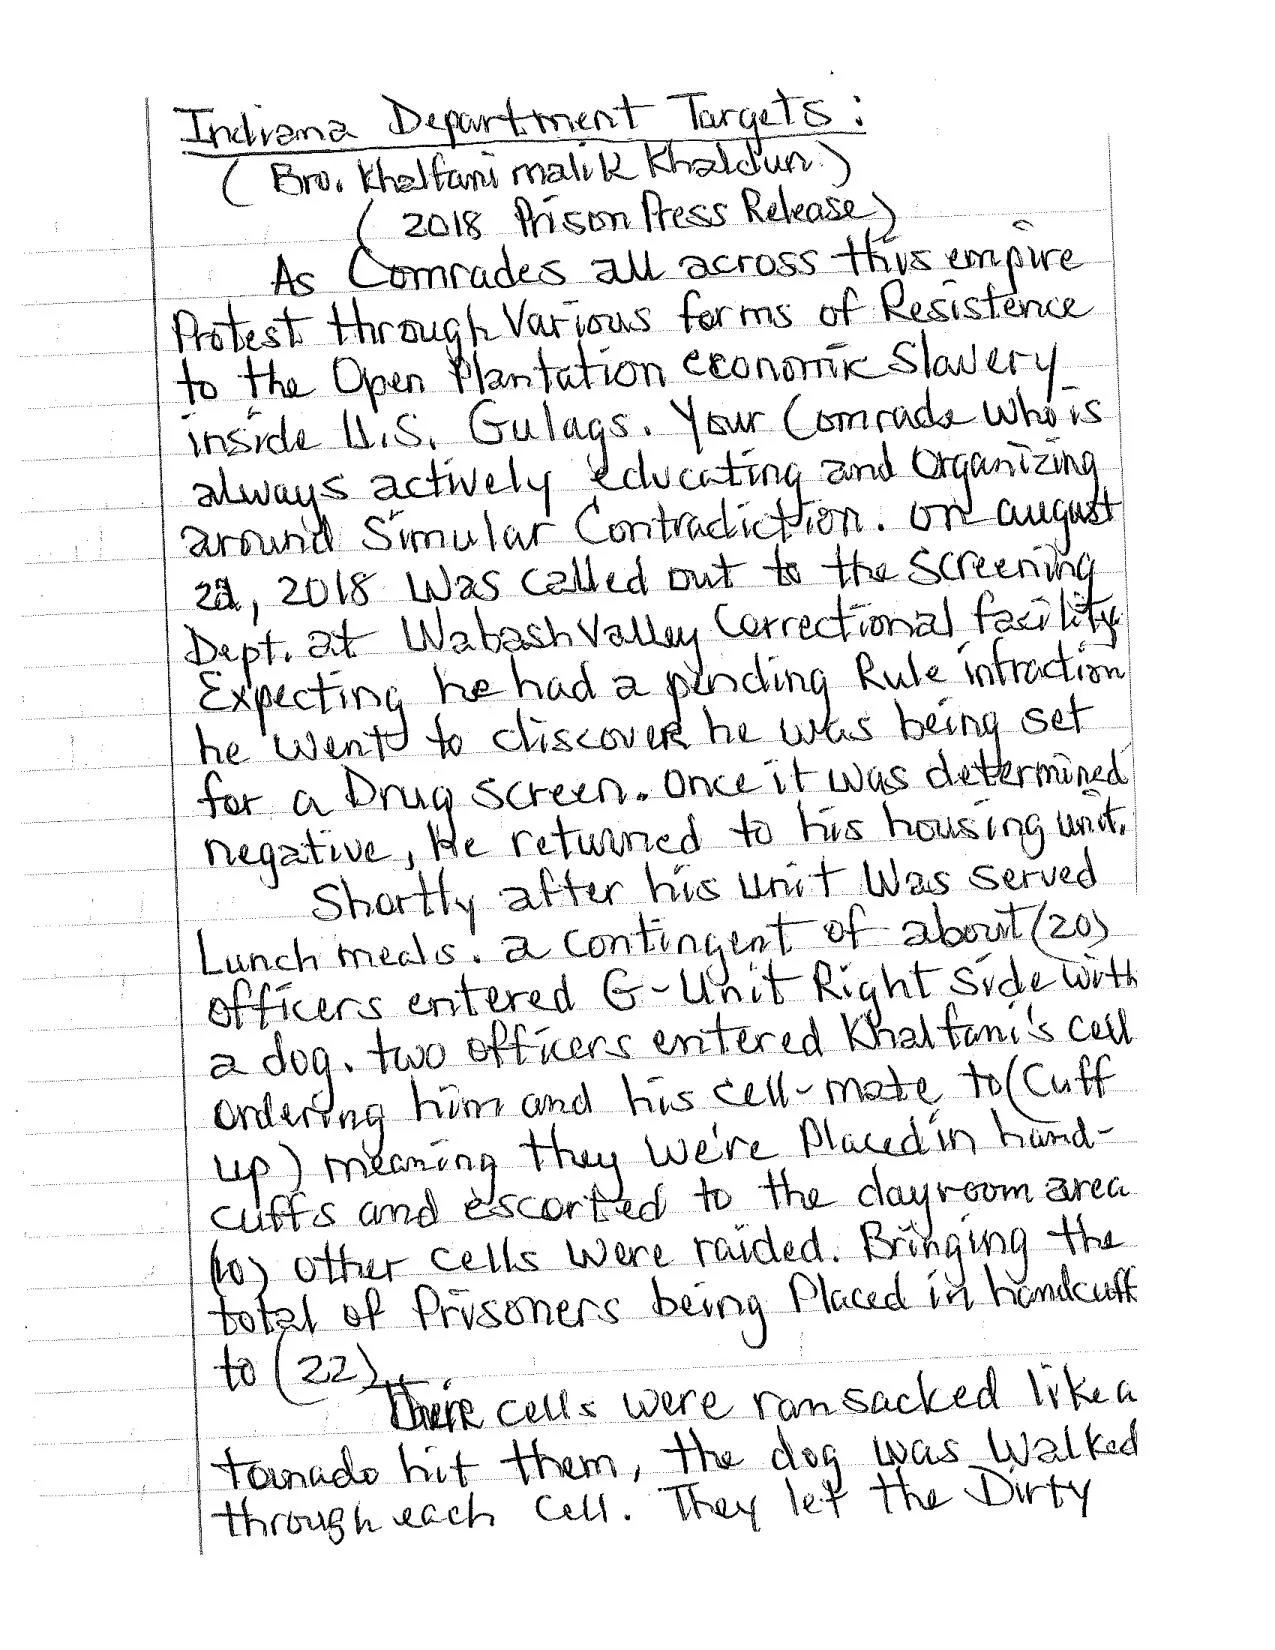 Indiana Department Targets:
(Bro. Khalfani malik Khaldun)
(2018 Prison Press Release)
As Comrades all across this empire
Protest through Various forms of Resistence
to the Open Plantation economic Slavery
inside U.S. Gulags. Your Comrade who is
always actively educating and Organizing
around Simular Contradiction. on august
22, 2018 Was called out to the screening
Dept. at Wabash Valley Correctional facility
Expecting he had a pending Rule infraction
he went to discover he was being set
for a Drug screen. Once it was determined
negative, He returned to his housing unit.
Shortly after his unit Was served
Lunch meals. a contingent of about (20)
officers entered G-Unit Right Side with
a dog. two officers entered Khalfani's cell
ordering him and his cell-mate to (Cuff
up) meaning they we're Placed in hand-
cuffs and escorted to the dayroom area
(10) other cells were raided. Bringing the
total of Prisoners being Placed in handcuff
to (22)
Their cells were ransacked like a
tornado hit them, the dog was walked
through each cell. They let the Dirty